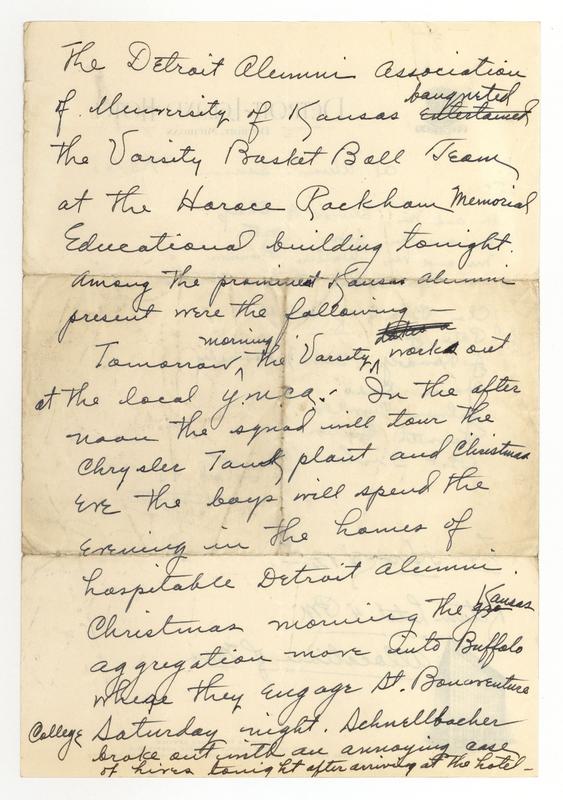 The Detroit Alumni Association
banqueted
of University of Kansas entertained
the Varsity Basket Ball Team
at the Horace Rackham Memorial
Educational building tonight.
Among the prominent Kansas alumni
present were the following —
morning
Tomorrow ^ the Varsity ^ works out
at the local Y.M.C.A. In the after
noon the squad will tour the
Chrysler Tank plant and Christmas
Eve the boys will spend the
evening in the homes of
hospitable Detroit Alumni.
Kansas
Christmas morning the
aggregation move into Buffalo
where they engage St. Bonaventure
College Saturday night. Schnellbacher
broke out with an annoying case
of hives tonight after arriving at the hotel —